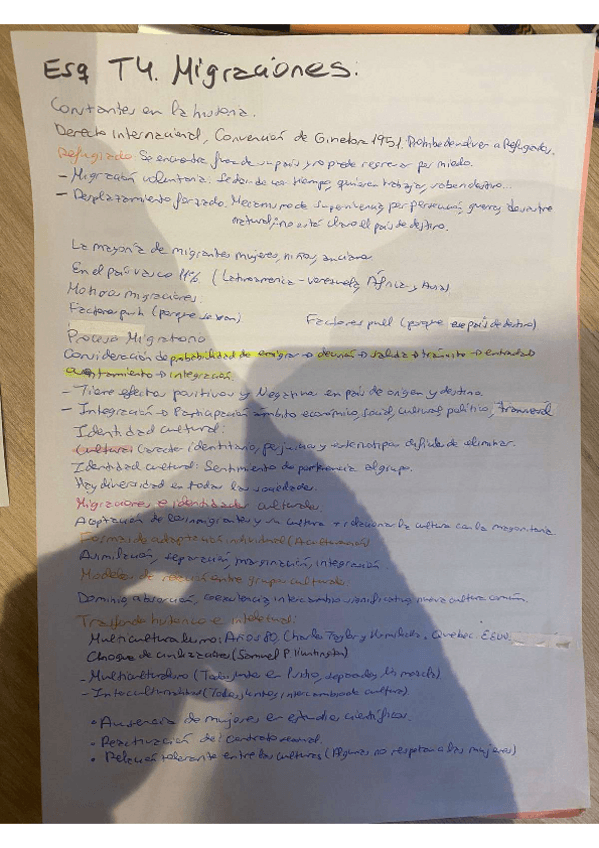 Esq T4. Migraciones.
Constantes en la historia.
Derecho Internacional, Convención de Ginebra 1951. Prohibe devolver a Refugiados.
Refugiado Se encuentra fuera de su país y no puede regresar por miedo.
- Migración voluntaria: tiempo, quieren trabajar, saben destino...
- Desplazamiento forzado. Mecanismo de supervivencia, por persecución, guerra, desastre
natural; no está claro el país de destino.
La mayoría de migrantes mujeres, niños, ancianos
En el país vasco 11% (Latinoamerica - Venezuela, África y Asia)
Motivos migraciones.
Factores push (porque se van) Factores pull (porque ese país de destino)
Proceso Migratorio
Consideración de probabilidad de emigrar → decisión → salida → tránsito → entrada
asentamiento → integración.
- Tiene efectos positivos y Negativos en país de origen y destino.
- Integración → Participación ámbito económico, social, cultural, político,
Identidad cultural:
Cultura: Caracter identitario, prejuicios y estereotipos dificiles de eliminar.
Identidad cultural: Sentimiento de pertenencia al grupo.
Hay diversidad en todas las sociedades.
Migraciones e identidades culturales
Aceptación de los inmigrantes y su cultura relacionar la cultura con la mayoritaria
Formas de adaptación individual (Aculturación)
Asimilación, separación, marginación, integración.
Modelos de relación entre grupos culturales:
Dominio absorción, coexistencia, intercambio significativo, nueva cultura común.
Trasfondo historico e intelectual:
Multiculturalismo: Años 80, Charles Taylor y Quebec. EEUU.
Choque de civilizaciones (Samuel P. Huntington)
- Multiculturalismo (Todos juntos separados)
- Interculturalidad (Todos juntos, intercambio de cultura)
• Ausencia de mujeres en estudios científicos.
• Reactivación del contrato sexual.
• Relación tolerante entre las culturas (Algunas no respetan a las mujeres)